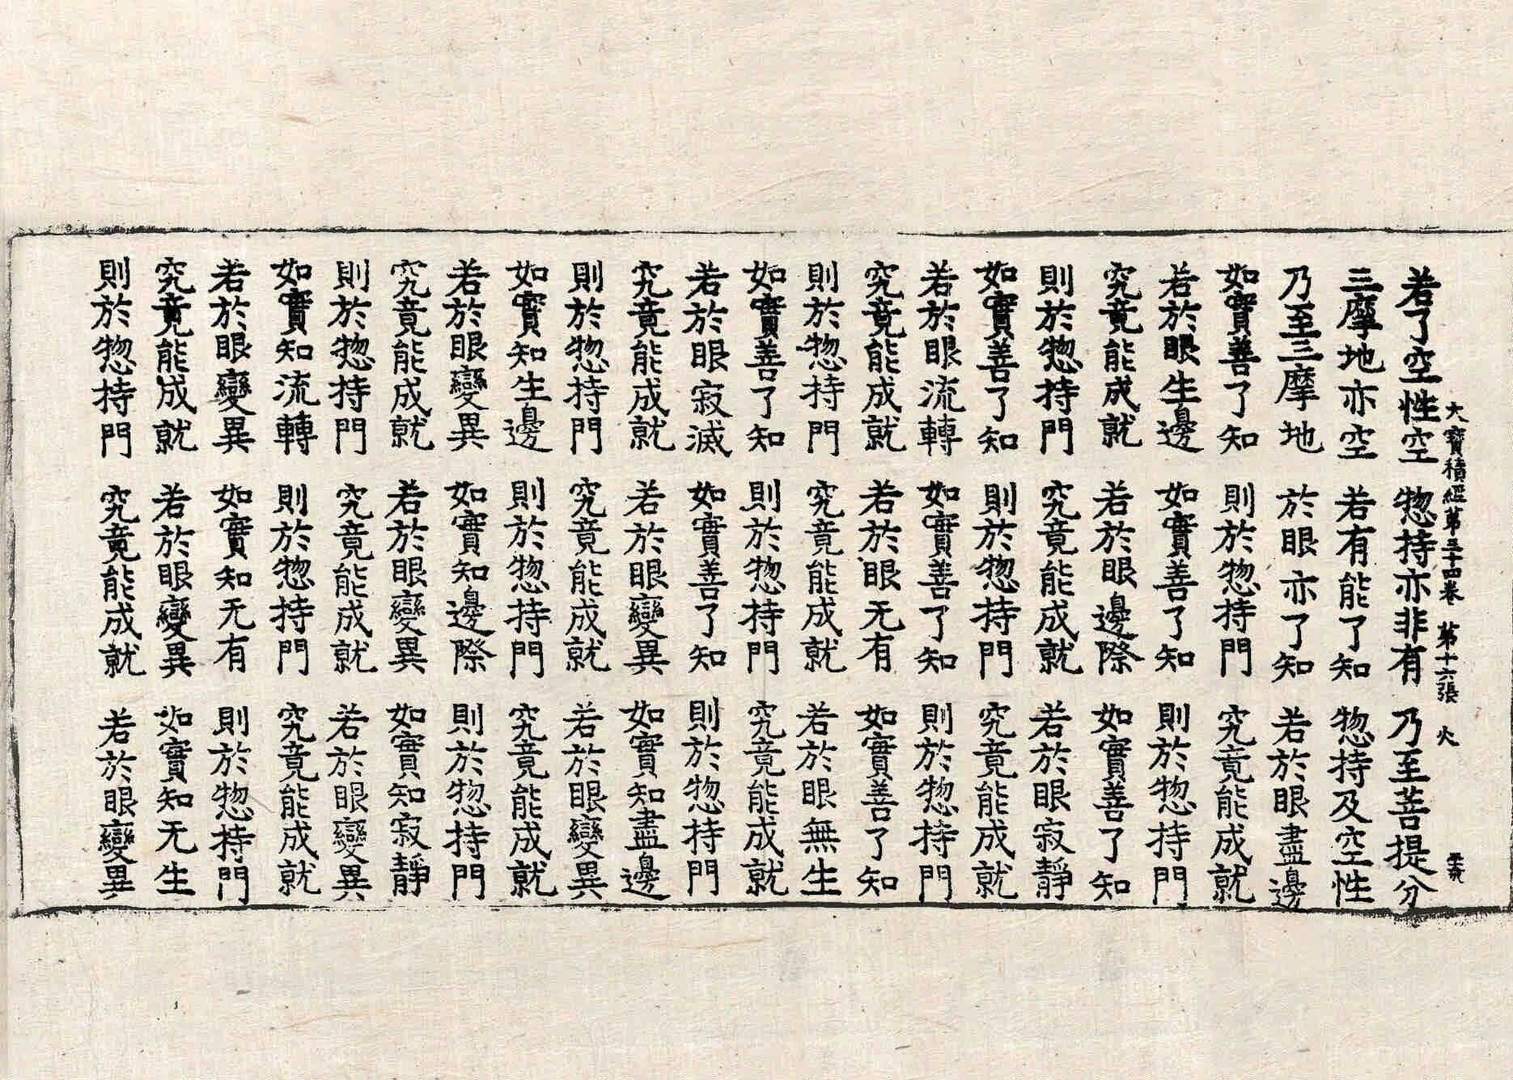 大寶積經苐三十四卷 苐十六張 火
若了空性空 惣持亦非有 乃至菩提分
三摩地亦空 若有能了知 惣持及空性
乃至三摩地 於眼亦了知 若於眼盡邊
如實善了知 則於惣持門 究竟能成就
若於眼生邊 如實善了知 則於惣持門
究竟能成就 若於眼邊際 如實善了知
則於惣持門 究竟能成就 若於眼寂靜
如實善了知 則於惣持門 究竟能成就
若於眼流轉 如實善了知 則於惣持門
究竟能成就 若於眼无有 如實善了知
則於惣持門 究竟能成就 若於眼無生
如實善了知 則於惣持門 究竟能成就
若於眼寂滅 如實善了知 則於惣持門
究竟能成就 若於眼變異 如實知盡邊
則於惣持門 究竟能成就 若於眼變異
如實知生邊 則於惣持門 究竟能成就
若於眼變異 如實知邊際 則於惣持門
究竟能成就 若於眼變異 如實知寂靜
則於惣持門 究竟能成就 若於眼變異
如實知流轉 則於惣持門 究竟能成就
若於眼變異 如實知无有 則於惣持門
究竟能成就 若於眼變異 如實知无生
則於惣持門 究竟能成就 若於眼變異